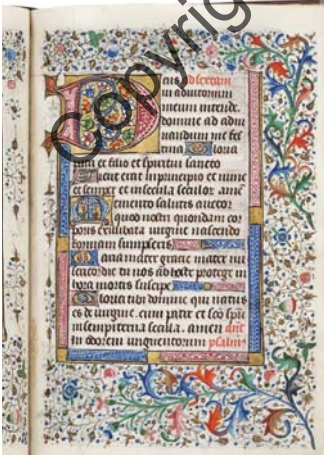 Deus ad sextam
in adiutorium
meum intende.
Domine ad adiu
uandum me fes
tina Gloria
patri et filio et spiritui sancto
Sicut erat in principio et nunc
et semper et in secula seculor. amen
Memento salutis auctor
quod nostri quondam cor
poris ex illibata uirgine nascendo
formam sumpseris
Maria mater gratie mater mi
sericordie tu nos ab hoste protege in
hora mortis suscipe
Gloria tibi domine qui natus
es de uirgine. cum patre et sco spu
in sempiterna secula. amen ant
In odorem unguentorum psalm
Copyrig